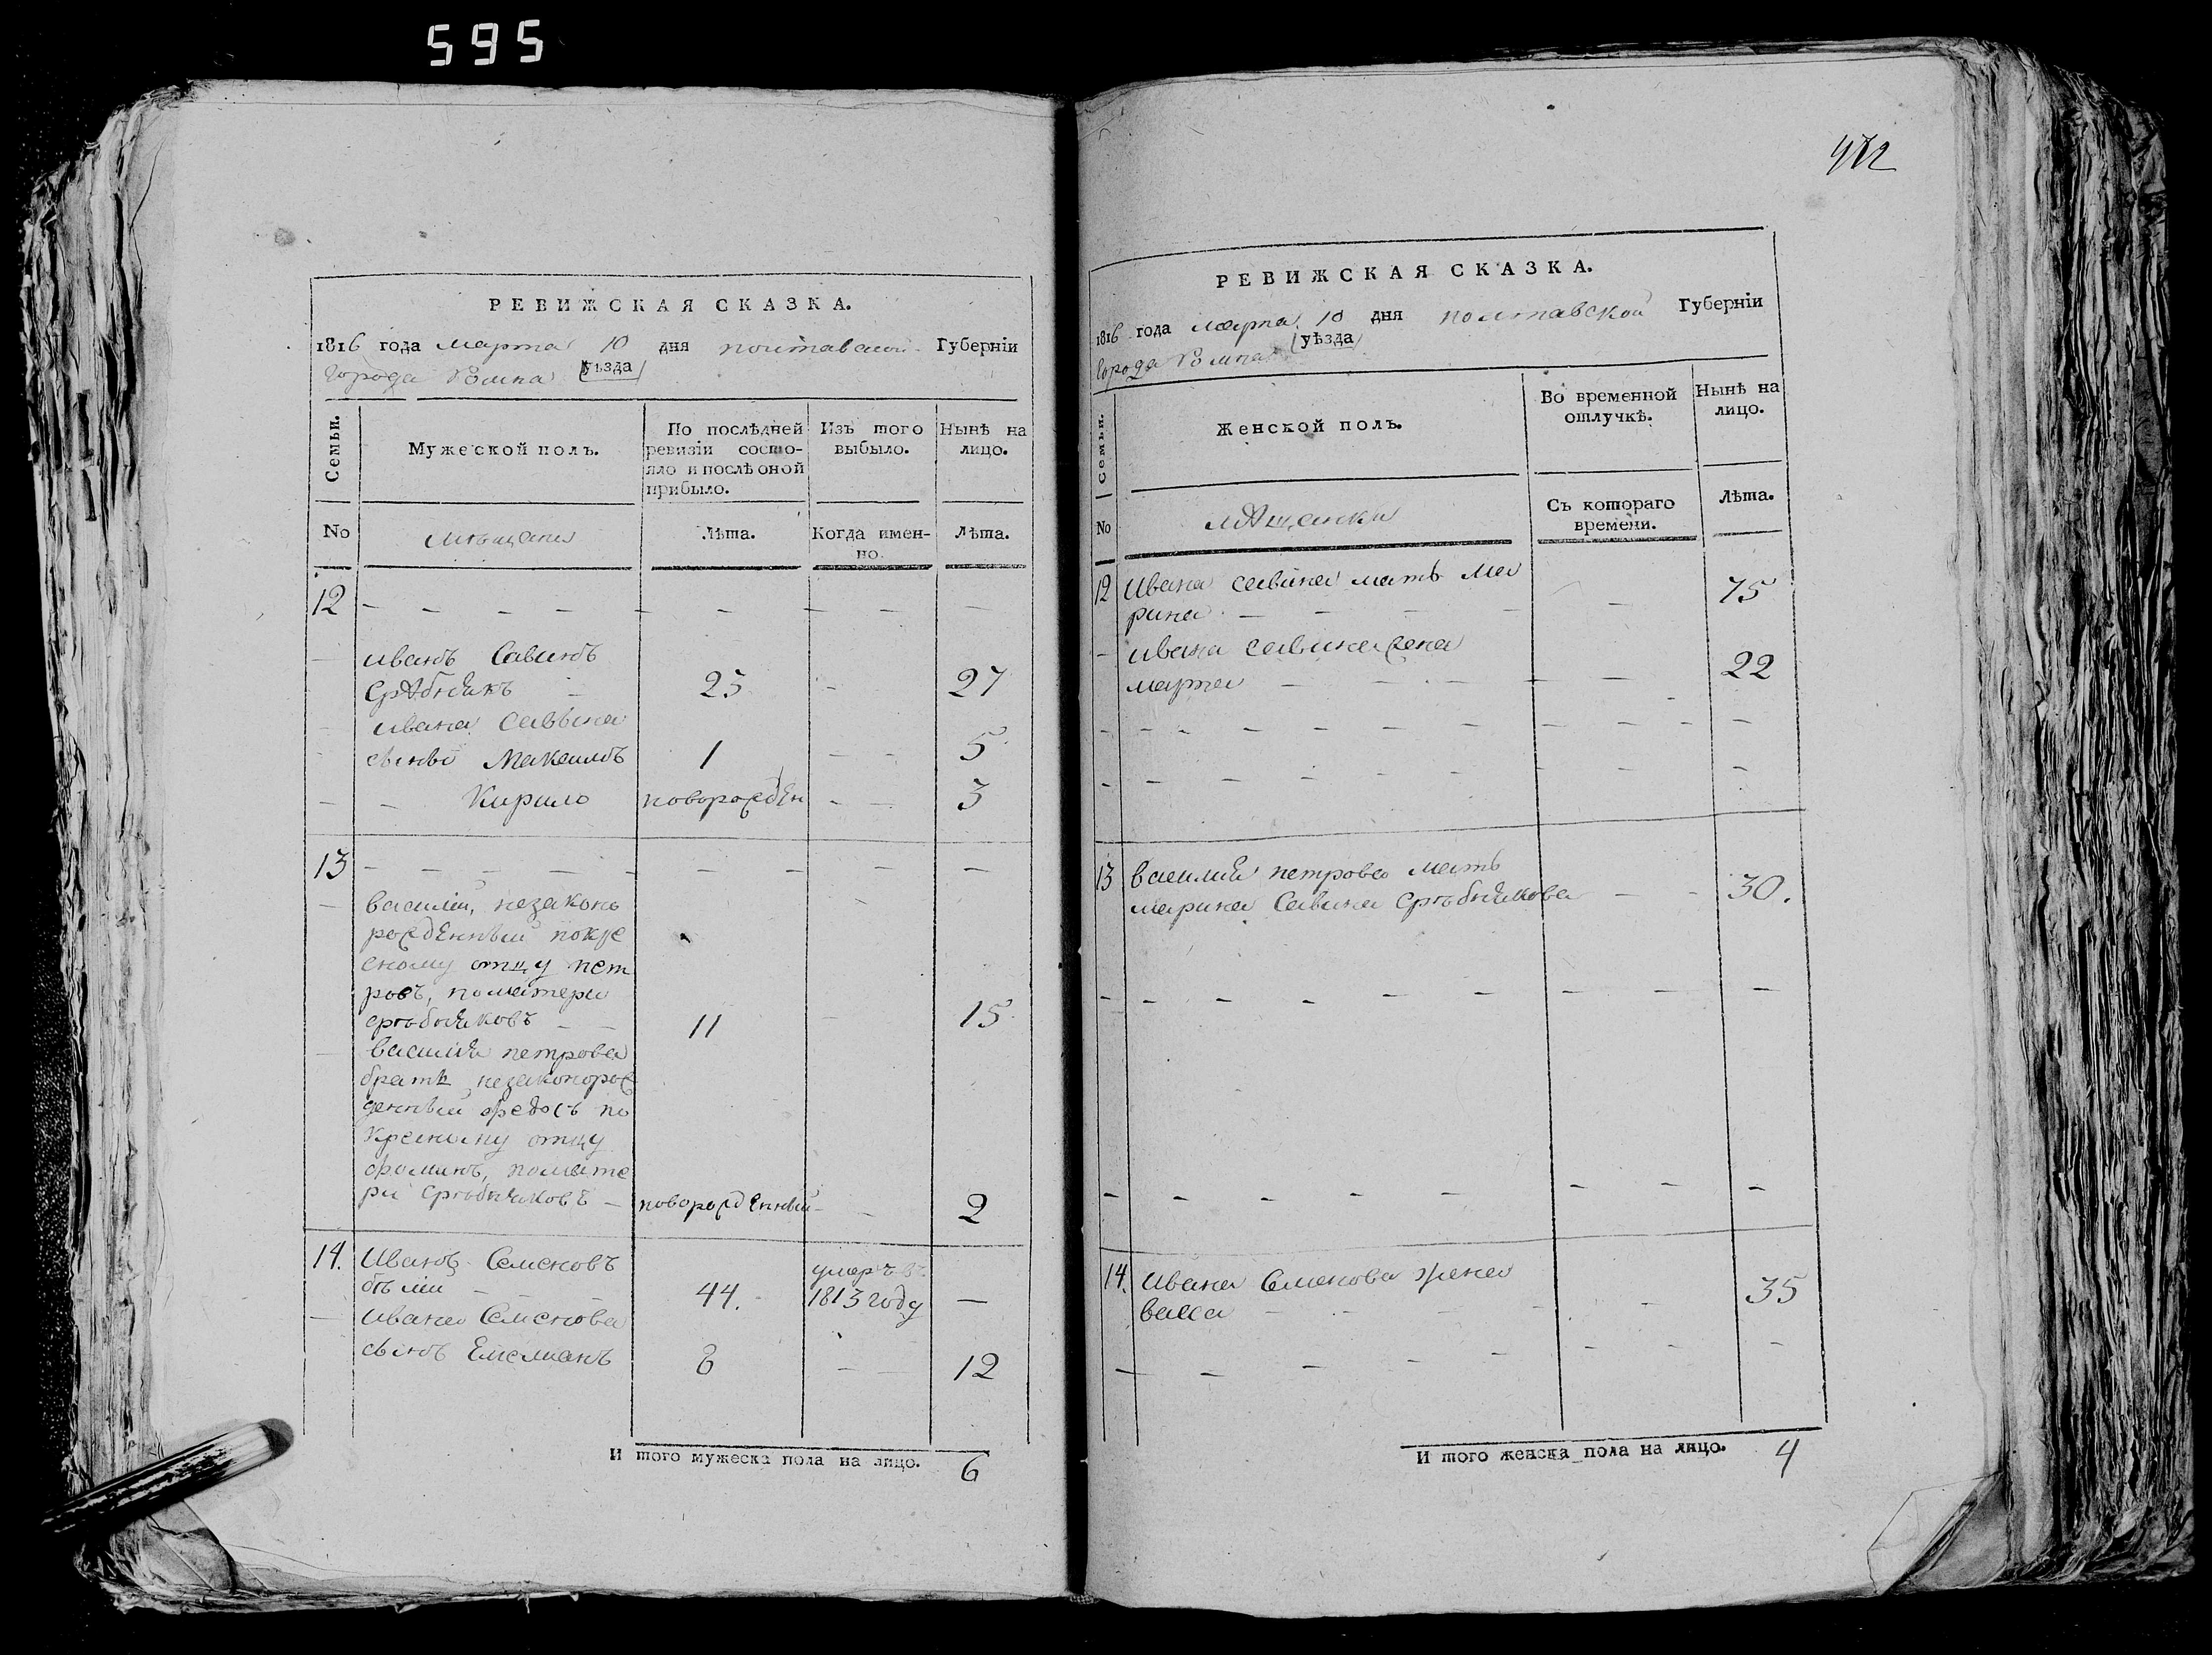 595
РЕВИЖСКАЯ СКАЗКА.
1816 года марта 10 дня полтавской Губерніи
города Ромна уѣзда
Семьи.
Мужеской полъ.
По послѣдней
ревизіи состо-
яло и послѣ оной
прибыло.
Изъ того
выбыло.
Нынѣ на
лицо.
No
мѣщане
Лѣта.
Когда имен-
но.
Лѣта.
12
иванъ Савинъ
Срѣбнякъ 25 27
ивана саввина
сынъ Максимъ 1 5
Кирило новорожден 3
13
василій, незаконо
рожденный по кре
сному отцу пет
ровъ, поматери
срѣбняковъ 11 15
василія петрова
братъ незаконорож
денный федосъ по
кресному отцу
фоминъ, помате
ри срѣбняковъ новорожденный 2
14. Иванъ Семеновъ умеръ в
44. 1813 году
ивана Семенова
сынъ Емелианъ 8 12
И того мужеска пола на лицо. 6
472
РЕВИЖСКАЯ СКАЗКА.
1816 года марта 10 дня полтавской Губерніи
города Ромна уѣзда
Семьи.
Женской полъ.
Во временной
отлучкѣ.
Нынѣ на
лицо.
No
мѣщанки
Съ котораго
времени.
Лѣта.
12 Ивана савина мать ма
рина 75
ивана савина жена
марта 22
13 василия петрова мать
марина Савина срѣбнякова 30.
14. Ивана Семенова жена
васса 35
И того женска пола на лицо. 4